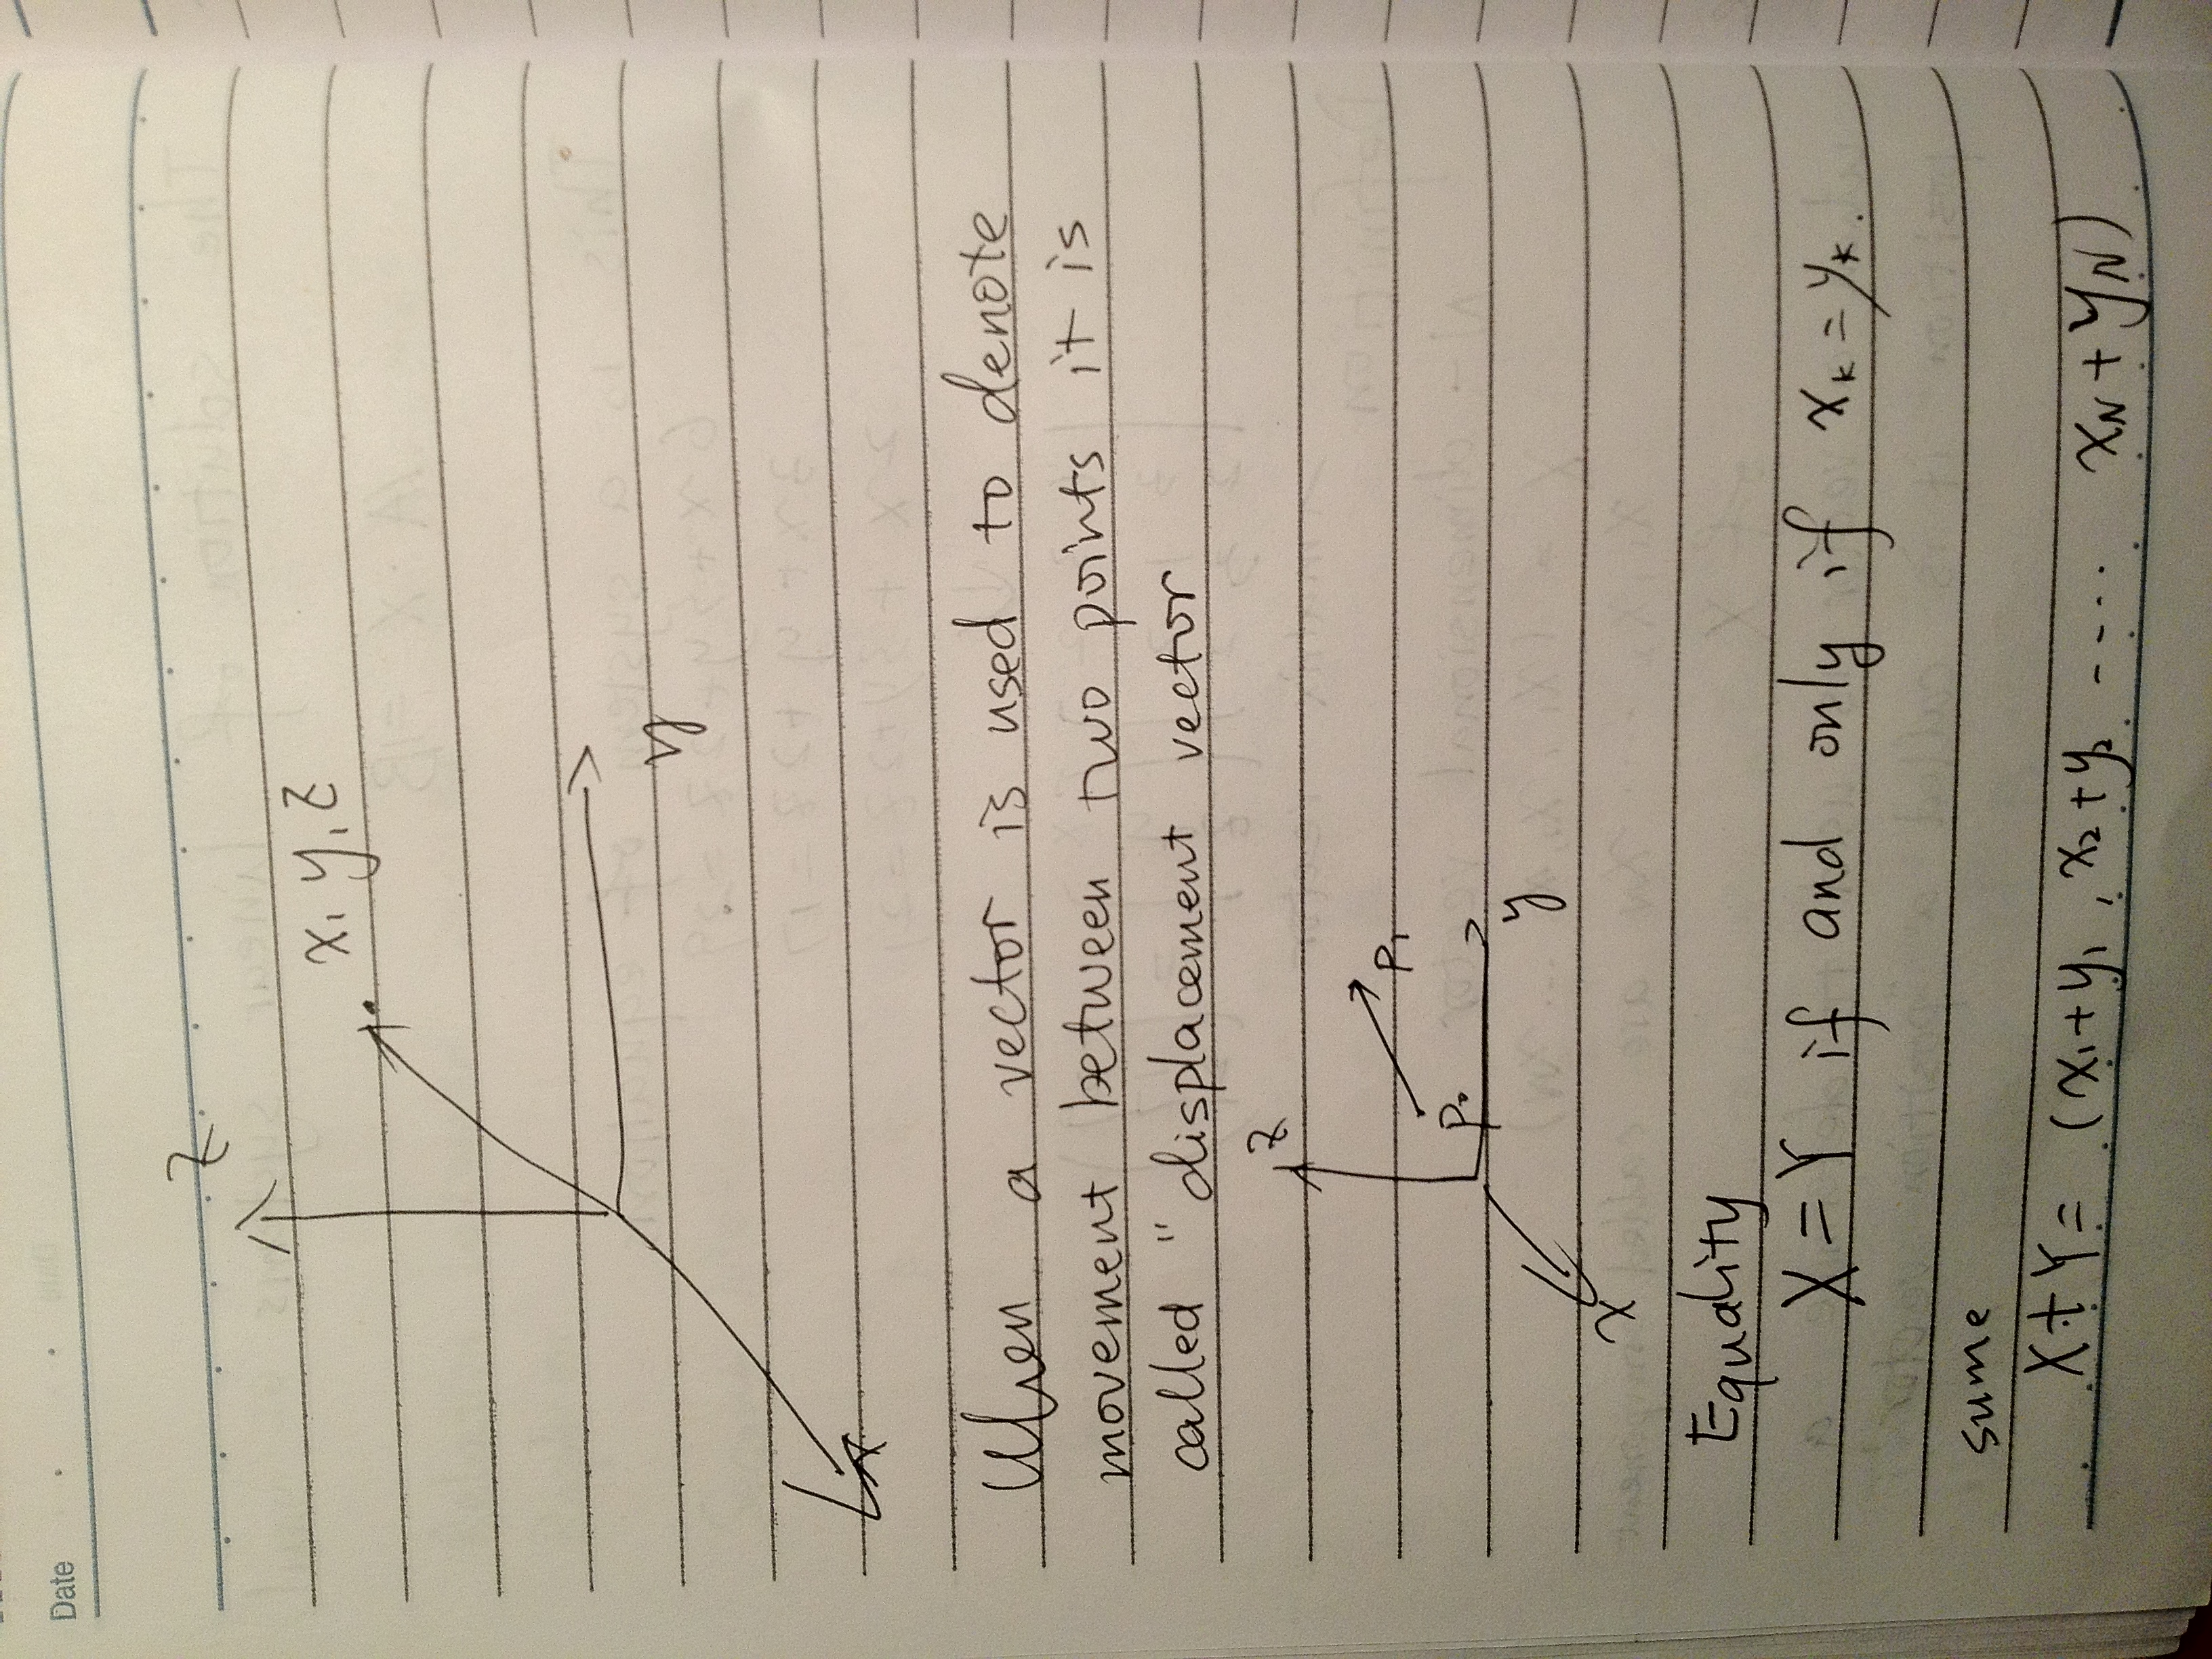 Date
z
x, y, z
y
x
When a vector is used to denote
movement between two points it is
called " displacement vector
z
P₁
P₀
y
x
Equality
X = Y if and only if x_k = y_k.
sume
X + Y = (x₁+y₁, x₂+y₂ ---... x_N + y_N)